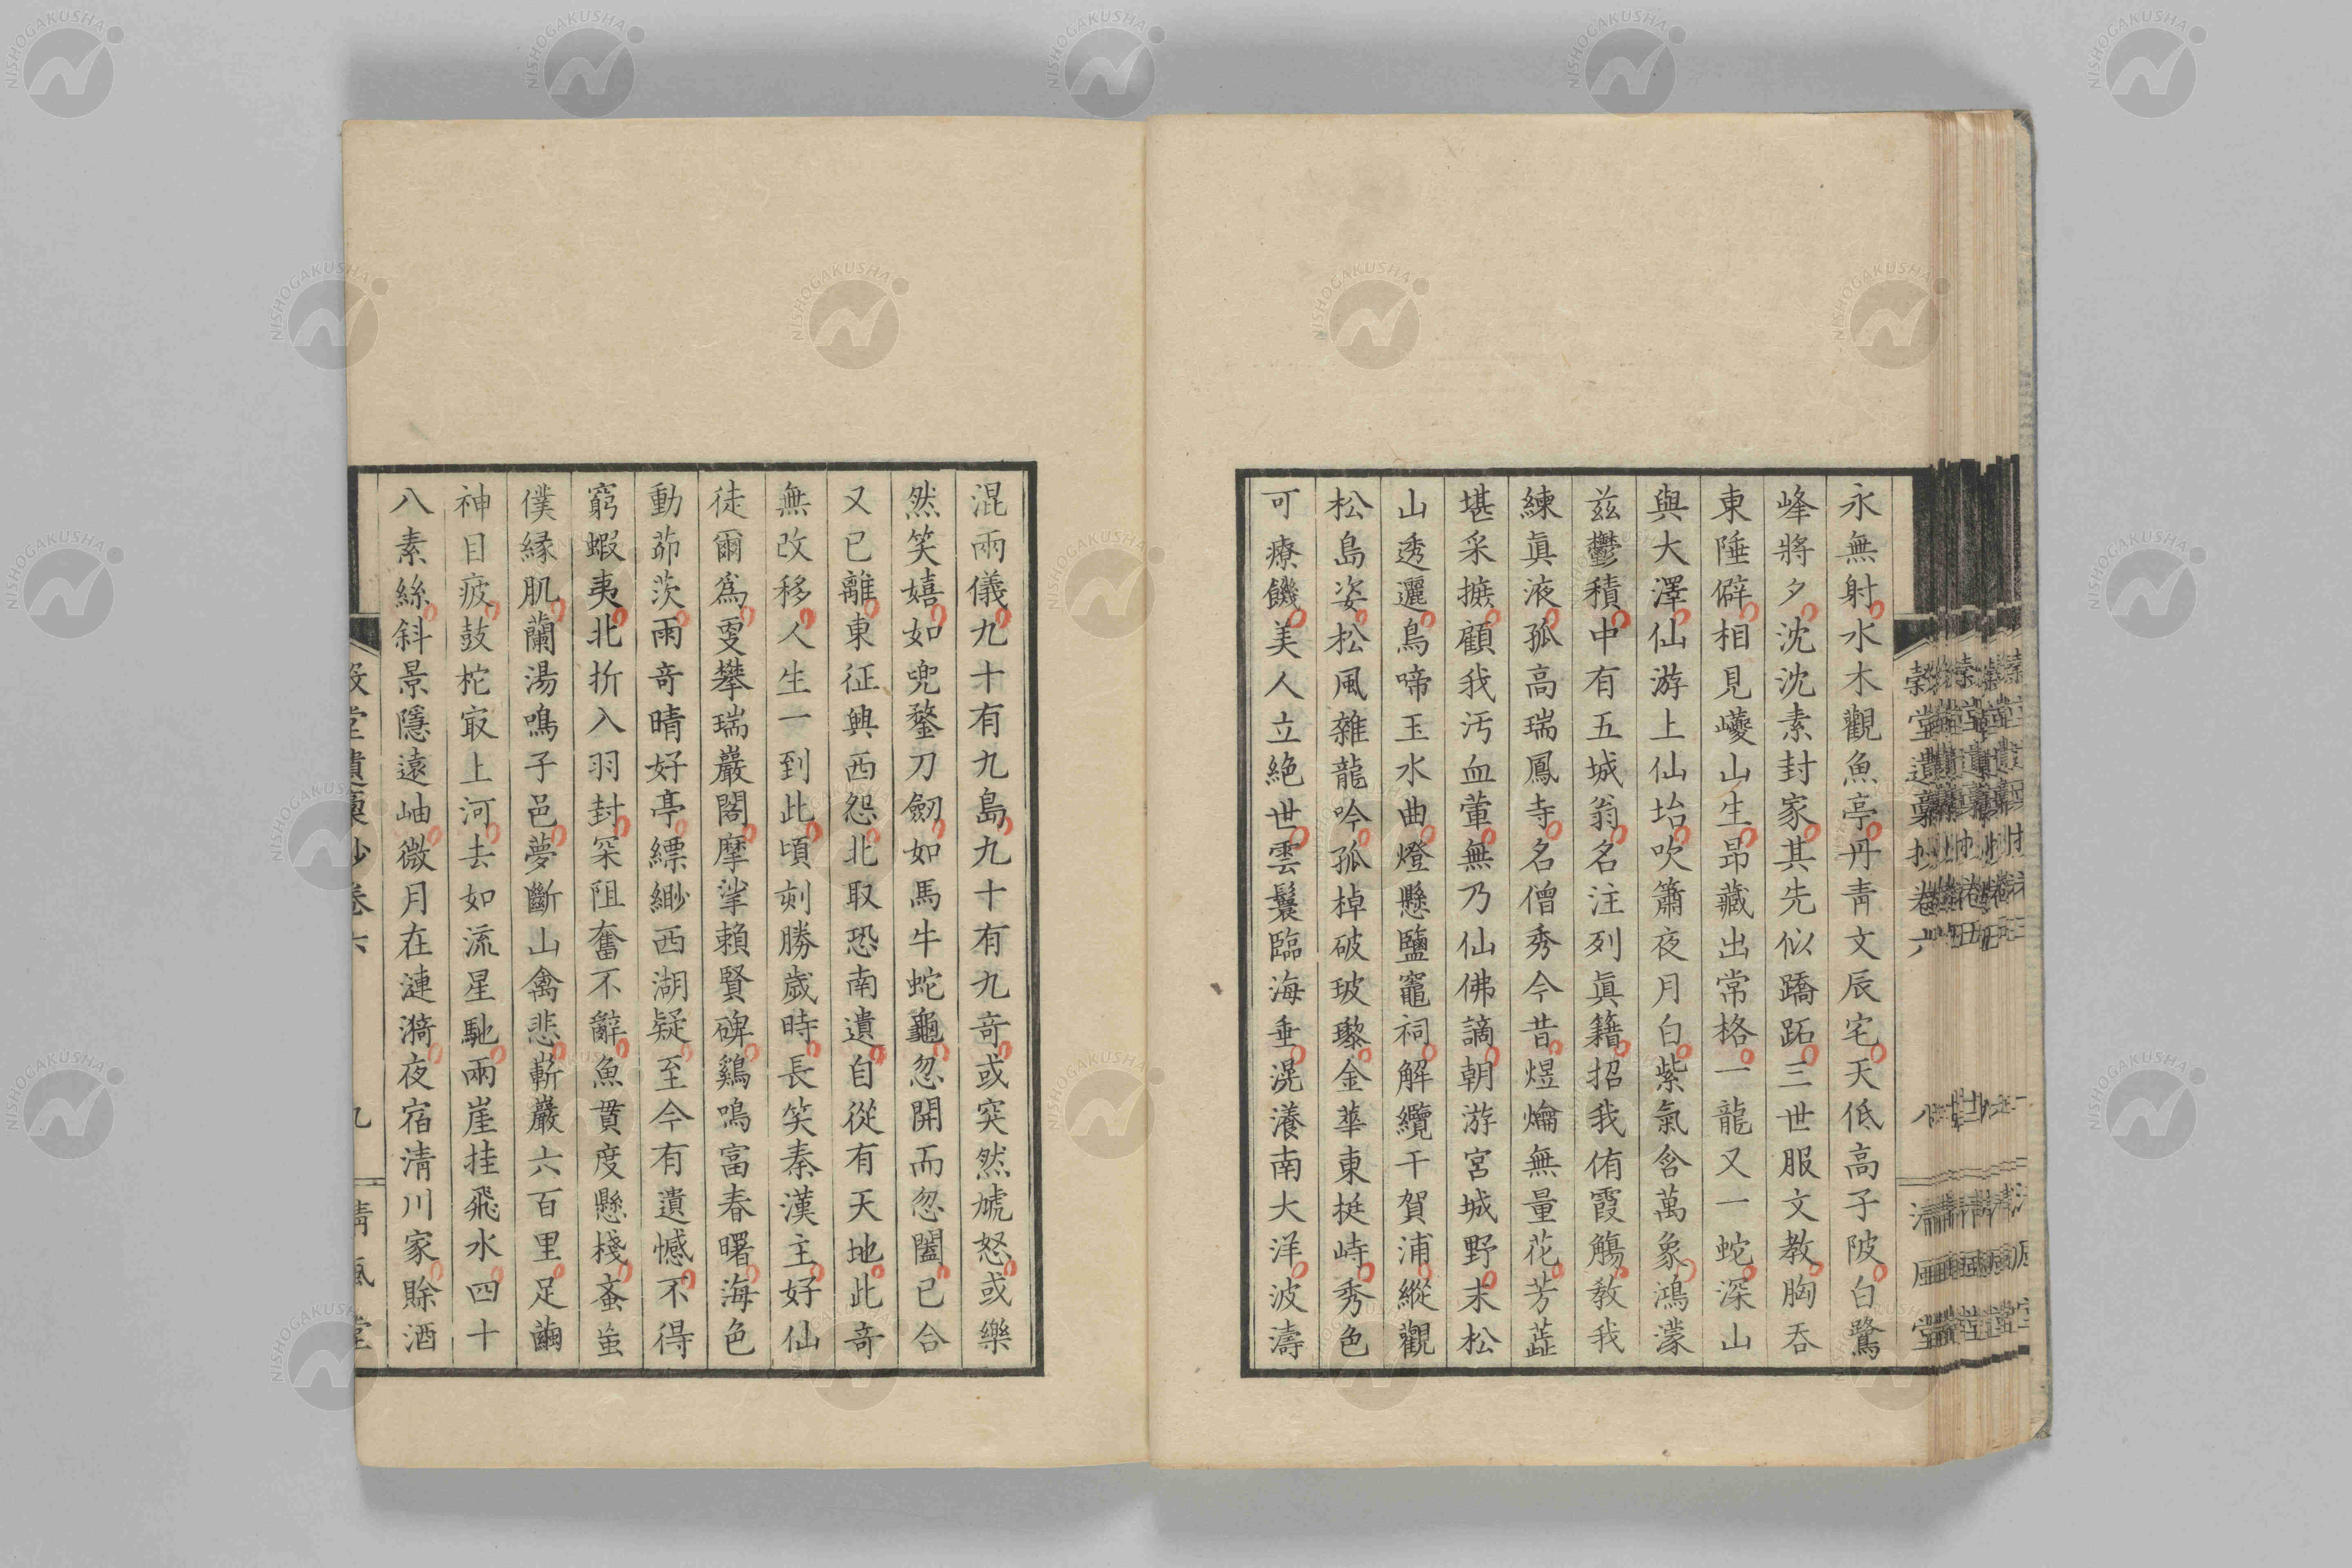 永無射水木觀魚亭丹靑文辰宅天低高子陂白鷺
峰將夕沈沈素封家其先似蹻跖三世服文教胸吞
東陲僻相見巙山生昻藏出常格一龍又一蛇深山
與大澤仙游上仙坮吹簫夜月白紫氣含萬象鴻濛
兹鬱積中有五城翁名注列眞籍招我侑霞觴教我
練眞液孤高瑞鳳寺名僧秀今昔煜爚無量花芳蕋
堪采摭顧我汚血葷無乃仙佛謫朝游宮城野末松
山透邐鳥啼玉水曲燈懸鹽竈祠解纜千賀浦縱觀
松島姿松風雜龍吟孤棹破玻瓈金華東挺峙秀色
可療饑美人立絕世雲鬟臨海垂滉瀁南大洋波濤
混兩儀九十有九島九十有九奇或突然虓怒或樂
然笑嬉如兜鍪刀劒如馬牛蛇龜忽開而忽闔已合
又已離東征興西怨北取恐南遺自從有天地此奇
無改移人生一到此頃刻勝歲時長笑秦漢主好仙
徒爾爲雯攀瑞巖閣摩挲賴賢碑鷄鳴富春曙海色
動茆茨雨奇晴好亭縹緲西湖疑至今有遺憾不得
窮蝦夷北折入羽封罙阻奮不辭魚貫度懸棧蚉䖟
僕緣肌蘭湯鳴子邑夢斷山禽悲嶄巖六百里足繭
神目疲鼓柁㝡上河去如流星馳兩崖挂飛水四十
八素絲斜景隱遠岫微月在漣漪夜宿淸川家賒酒
堂遺稾抄卷六
九
淸風堂
NISHOGAKUSHA